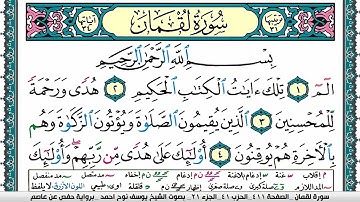 سورة لقمان
بسم الله الرحمن الرحيم
الٓمٓ ١ تِلْكَ ءَايَٰتُ ٱلْكِتَٰبِ ٱلْحَكِيمِ ٢ هُدًى وَرَحْمَةً
لِّلْمُحْسِنِينَ ٣ ٱلَّذِينَ يُقِيمُونَ ٱلصَّلَوٰةَ وَيُؤْتُونَ ٱلزَّكَوٰةَ وَهُم
بِٱلْءَاخِرَةِ هُمْ يُوقِنُونَ ٤ أُو۟لَٰٓئِكَ عَلَىٰ هُدًى مِّن رَّبِّهِمْ وَأُو۟لَٰٓئِكَ
سورة لقمان الصفحة ٤١١ الحزب ٤١ الجزء ٢١ بصوت الشيخ يوسف نوح احمد برواية حفص عن عاصم